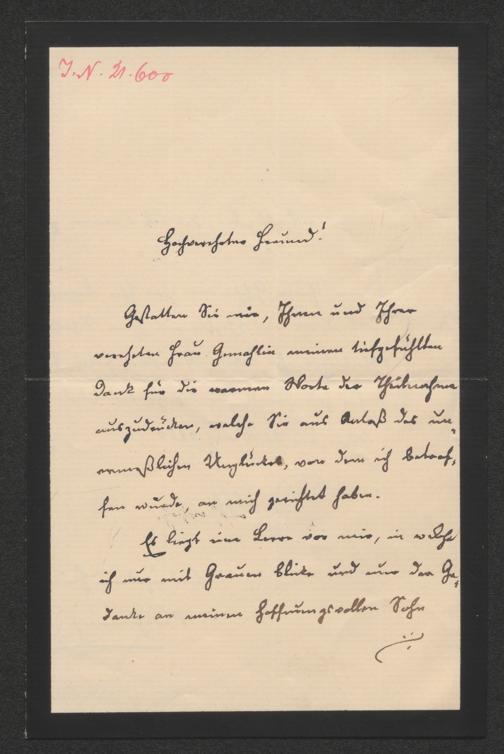 I.N. 21.600
Hochverehrter Freund!
Gestatten Sie mir, Ihnen und Ihrer
verehrten Frau Gemahlin meinen tiefgefühlten
Dank für die warmen Worte der Theilnahme
auszudrücken, welche Sie aus Anlaß des un-
ermeßlichen Unglückes, von dem ich betrof-
fen wurde, an mich gerichtet haben.
Es liegt eine Leere vor mir, in welche
ich nur mit Grauen blicke und nur der Ge-
danke an meinen hoffnungsvollen Sohn